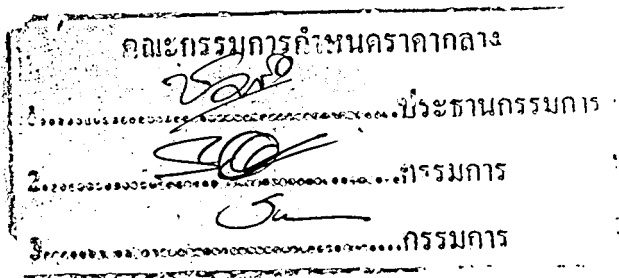 คณะกรรมการกำหนดราคากลาง
1..............................ประธานกรรมการ
2..............................กรรมการ
3..............................กรรมการ